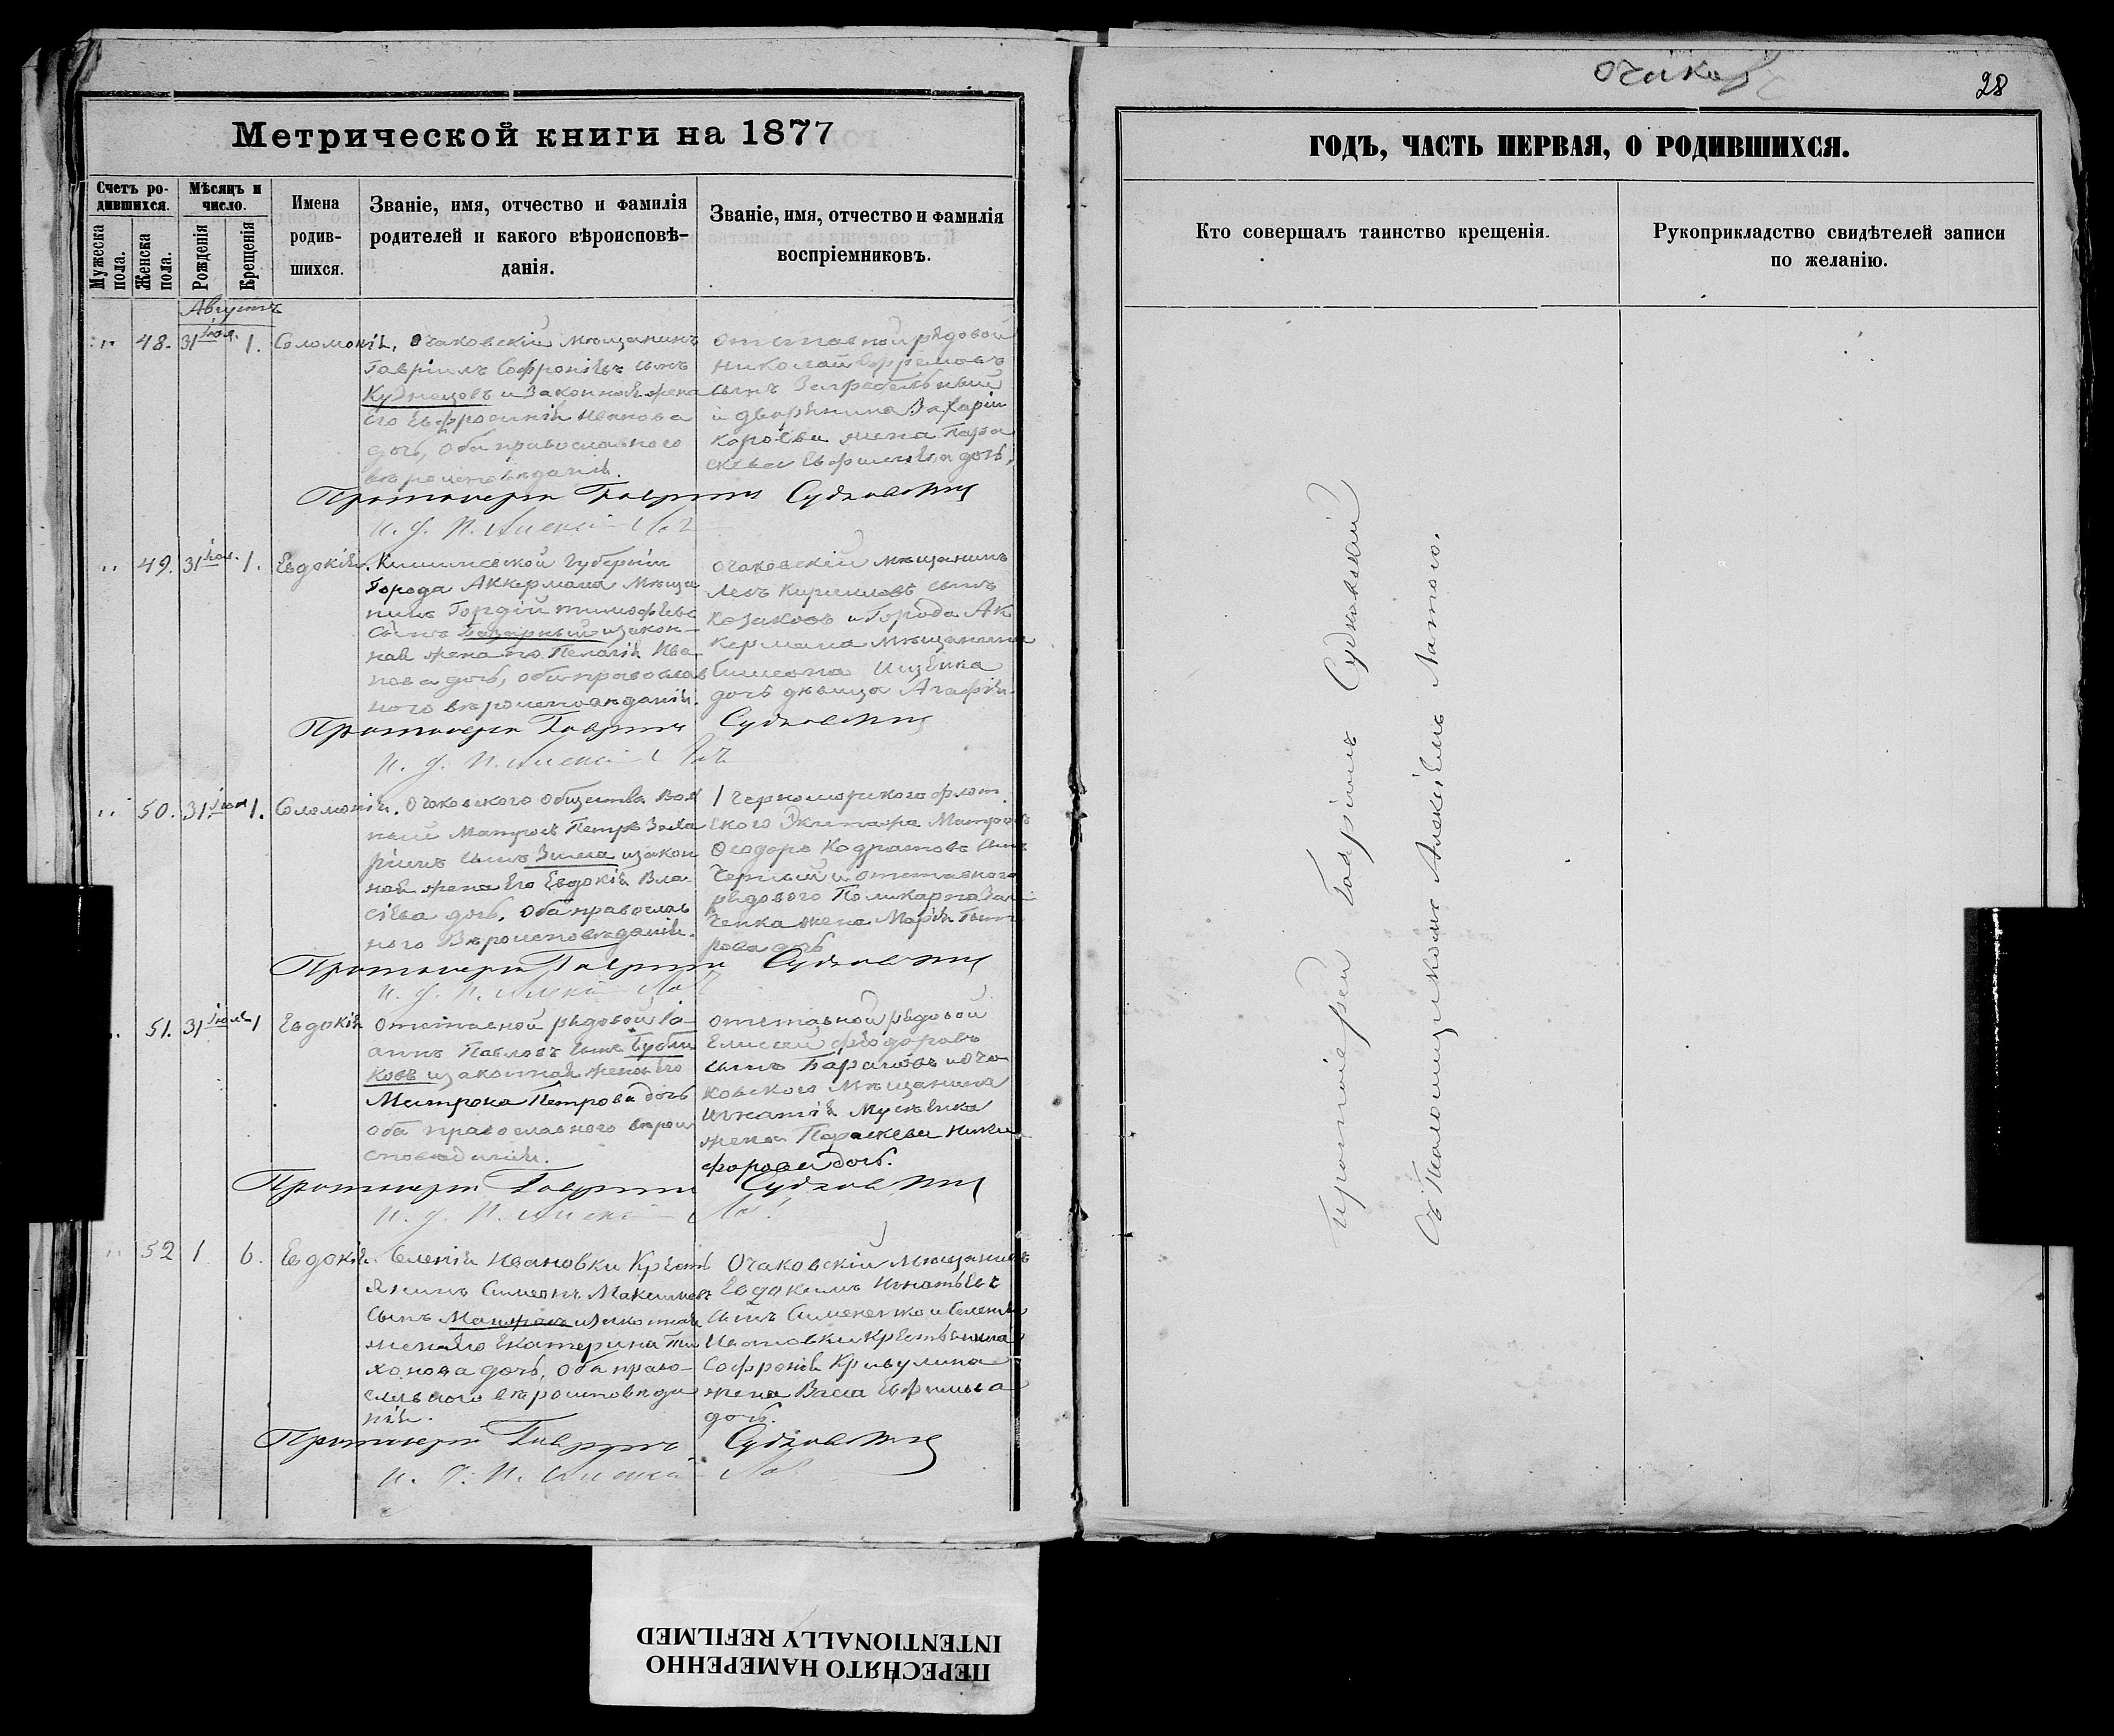 Метрической книги на 1877
Счетъ ро-
дившихся.
Мѣсяцъ и
число.
Мужеска
пола.
Женска
пола.
Рожденія
Крещенія
Имена
родив-
шихся.
Званіе, имя, отчество и фамилія
родителей и какого вѣроисповѣ-
данія.
Званіе, имя, отчество и фамилія
воспріемниковъ.
Августъ
48. 31 Іюл. 1. Соломонія,
Очаковскій мѣщанинъ
Гавріилъ Софроніевъ сынъ
Кузнецовъ и законная жена
его Евфросинія Иванова
дочь, оба православнаго
вѣроисповѣданія.
отставной рядовой
Николай Ефремовъ
сынъ
и дворянина Захарія
жена Пара
скева дочь,
Протоіерей Гавріилъ Судковскій
49. 31 Іюл. 1. Евдокія.
Кишиневской губерніи
Города Аккермана Мѣща
нинъ Гордій Тимофеевъ
сынъ Базарный и закон-
ная жена его Пелагія Ива
нова дочь, оба православ
ного вѣроисповѣданія.
Очаковскій мѣщанинъ
Левъ Кирилловъ сынъ
Козаковъ и Города Ак
кермана мѣщанина
Симеона Ищенка
дочь дѣвица Агафія.
Протоіерей Гавріилъ Судковскій
50. 31 Іюл 1. Соломонія.
Очаковского общества
Матросъ Петръ Заха
ріинъ сынъ Зима и закон
ная жена его Евдокія Вла
сіева дочь, оба православ
ного Вѣроисповѣданія.
Черноморского флот
ского Экипажа Матросъ
Ѳеодоръ Кодратовъ сынъ
Черный и отставного
рядового Поликарпа
ченка жена Марія
рова дочь
Протоіерей Гавріилъ Судковскій
51. 31 Іюля 1 Евдокія
Отставной рядовой Іо-
аннъ Павловъ сынъ Бубли
ковъ и законная жена его
Митрона Петрова дочь
оба православного вѣрои
сповѣданія.
отставной рядовой
Елисей Феодоровъ
сынъ и Оча
ковского Мѣщанина
Игнатія
жена Параскева Ники
форова дочь.
Протоіерей Гавріилъ Судковскій
52 1 6. Евдокія.
Селенія Ивановки Кресть
янинъ Симеонъ Максимовъ
сынъ и законная
жена его Екатерина Ти
хонова дочь, оба право-
славного вѣроисповѣда
нія.
Очаковскій Мѣщанинъ
Евдокимъ Игнатьевъ
сынъ Симененко и Селенія
Ивановки Крестьянина
Софронія Кривулина
жена Васса Ефимова
дочь.
Протоіерей Гавріилъ Судковскій
Очаковъ
28
ГОДЪ, ЧАСТЬ ПЕРВАЯ, О РОДИВШИХСЯ.
Кто совершалъ таинство крещенія.
Рукоприкладство свидѣтелей записи
по желанію.
Протоіерей Гавріилъ Судковскій
съ Псаломщикомъ Алексіемъ
ПЕРЕСНЯТО НАМЕРЕННО
INTENTIONALLY REFILMED